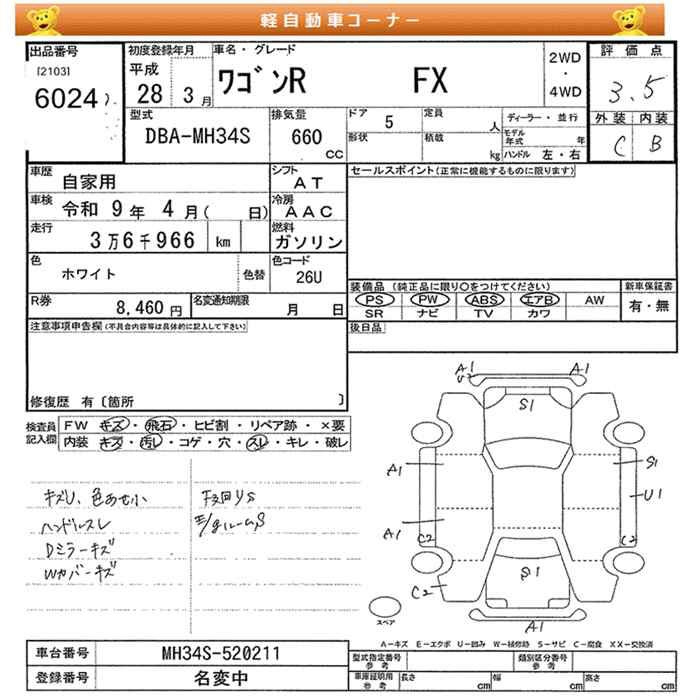 軽自動車コーナー
出品番号
[2103]
6024
初度登録年月
平成
28 3月
車名・グレード
ワゴンR FX
2WD
・
4WD
評価点
3.5
外装 内装
C B
型式
DBA-MH34S
排気量
660
CC
ドア 5
形状
定員 人
積載 kg
ディーラー・並行
モデル年式 年
ハンドル 左・右
車歴
自家用
シフト
AT
車検
令和 9年 4月( 日)
冷房
AAC
走行
3万6千966 km
燃料
ガソリン
色
ホワイト
色替
色コード
26U
R券
8,460円
名変通知期限
月 日
セールスポイント(正常に機能するものに限ります)
装備品 (純正品に限り○をつけてください)
PS PW ABS エアB AW
SR ナビ TV カワ
新車保証書
有・無
後日品
注意事項申告欄(不具合内容等は具体的に記入して下さい)
修復歴 有〔箇所 〕
検査員
記入欄
FW キズ・飛石・ヒビ割・リペア跡・×要
内装 キズ・汚レ・コゲ・穴・スレ・キレ・破レ
キズU、色あせ小
ハンドルスレ
Dミラーキズ
Wカバーキズ
下回りS
E/gルームS
A1
U2
A1
S1
A1
S1
U1
A1
C2
C2
S1
C2
A1
スペア
A-キズ E-エクボ U-凹み W-補修跡 S-サビ C-腐食 XX-交換済
車台番号 MH34S-520211
登録番号 名変中
型式指定番号
参考
類別区分番号
参考
車庫証明用
参考
長さ cm
幅 cm
高さ cm